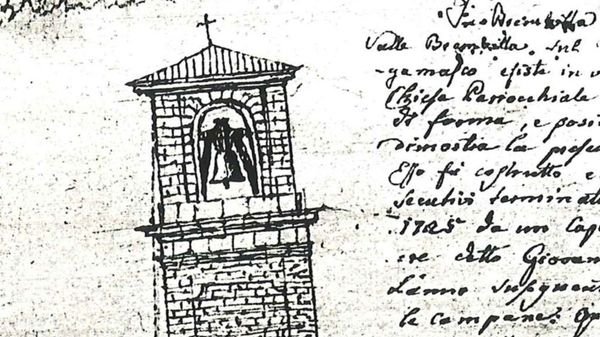 In Brembilla
Valle Brembilla, sul
-gamasco esiste in
Chiesa Parrocchiale
Di forma, e posi
dimostra la prese
Esso fù costrutto e
secutivi terminat
1725 da un Cap
re detto Giovan
L'anno susseguen
le campane: Op